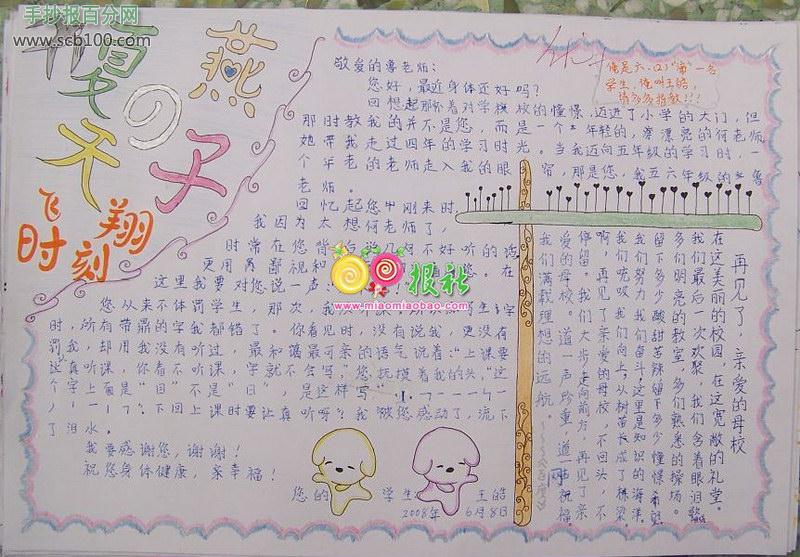 手抄报百分网
www.scb100.com
夏天の燕子
飞翔时刻
俺是六.(2)"莆"一名
学生,俺叫王皓,
请多多指教!!!
敬爱的鲁老师:
您好,最近身体还好吗?
回想起那怀着对学校的憧憬,迈进了小学的大门,但
那时教我的并不是您,而是一个年轻的,漂漂亮的何老师
她带我走过四年的学习时光。当我迈向五年级的学习时,一
个年老的老师走入我的眼帘,那是您,我五六年级的鲁
老师。
回忆起您中刚来时,
我因为太想何老师了,
时常在您背后说几句不好听的话
更用鄙视和 您。在
这里我要对您说一声:
您从来不体罚学生 那次,我 字
时,所有带鼎的字我都错了。你看见时,没有说我,更没有
罚我,却用我没有听过,最和蔼最可亲的语气说着:"上课要
认真听课,你看不听课,字就不会写。"您抚摸着我的头,"这
个字上面是"目"不是"日",是这样写
下回上课时要认真听呀?我被您感动了,流下
了泪水。
我要感谢您,谢谢!
祝您身体健康,幸福!
您的 学生:王皓
2008年6月8日
报社
www.miaomiaobao.com
再见了.亲爱的母校
在这美丽的校园,在这宽敞的礼堂。
我们最后一次欢聚 我们含着眼泪
多们明亮的教室 多们熟悉的操场。
留下多少酸甜苦辣 留下多少憧憬希望
我们唔努力我们奋斗,这里是知识的海洋
我们吮吸 我们向上,从树苗长成了栋梁
啊,再见了亲爱的母校,不回头,不
停留 我们大步走向前方,再见了亲
爱的母校。道一声珍重,道一声祝福
我们满载理想的远航。